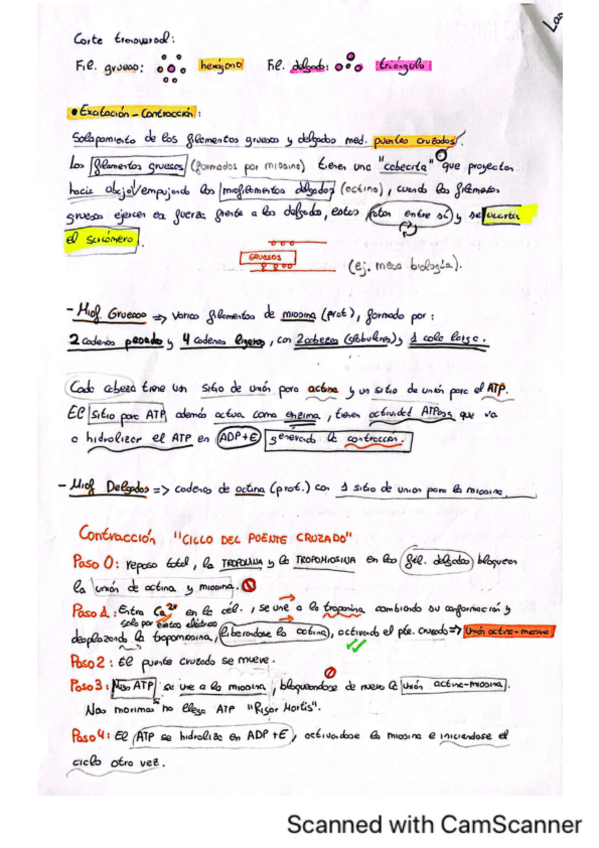 Corte transversal:
Fil. grueso: hexágono Fil. delgado: triángulo
• Excitación - Contracción:
Solapamiento de los filamentos gruesos y delgados med. puentes cruzados.
Los filamentos gruesos (formados por miosina) tienen una "cabecita" que proyectan
hacia abajo/empujando los miofilamentos delgados (actina), cuando los filamentos
gruesos ejercen esa fuerza frente a los delgados, estos rotan entre sí y se acorta
el sarcómero.
GRUESOS
(ej. mesa biología).
- Miof. Gruesos => Varios filamentos de miosina (prot), formado por:
2 cadenas pesadas y 4 cadenas ligeras, con 2 cabezas (globulares) y 1 cola larga.
Cada cabeza tiene un sitio de unión para actina y un sitio de unión para el ATP.
El sitio para ATP además actua como enzima, tienen actividad ATPasa que va
a hidrolizar el ATP en ADP+E generando la contracción.
- Miof. Delgados => cadenas de actina (prot.) con 1 sitio de union para la miosina
Contracción "CICLO DEL PUENTE CRUZADO"
Paso 0: reposo total, la TROPONINA y la TROPOMIOSINA en los fil. delgados bloquean
la unión de actina y miosina.
Paso 1: Entra Ca²⁺ en la cél., se une a la troponina cambiando su conformación y
solo por
desplazando la tropomiosina, liberandose la actina, activando el pte. cruzado => Unión actina-miosina
Paso 2: El puente cruzado se mueve.
Paso 3: ATP se une a la miosina, bloqueandose de nuevo la unión actina-miosina.
Nos morimos no llega ATP "Rigor Mortis".
Paso 4: El ATP se hidroliza en ADP+E, activandose la miosina e iniciandose el
ciclo otra vez.
Scanned with CamScanner